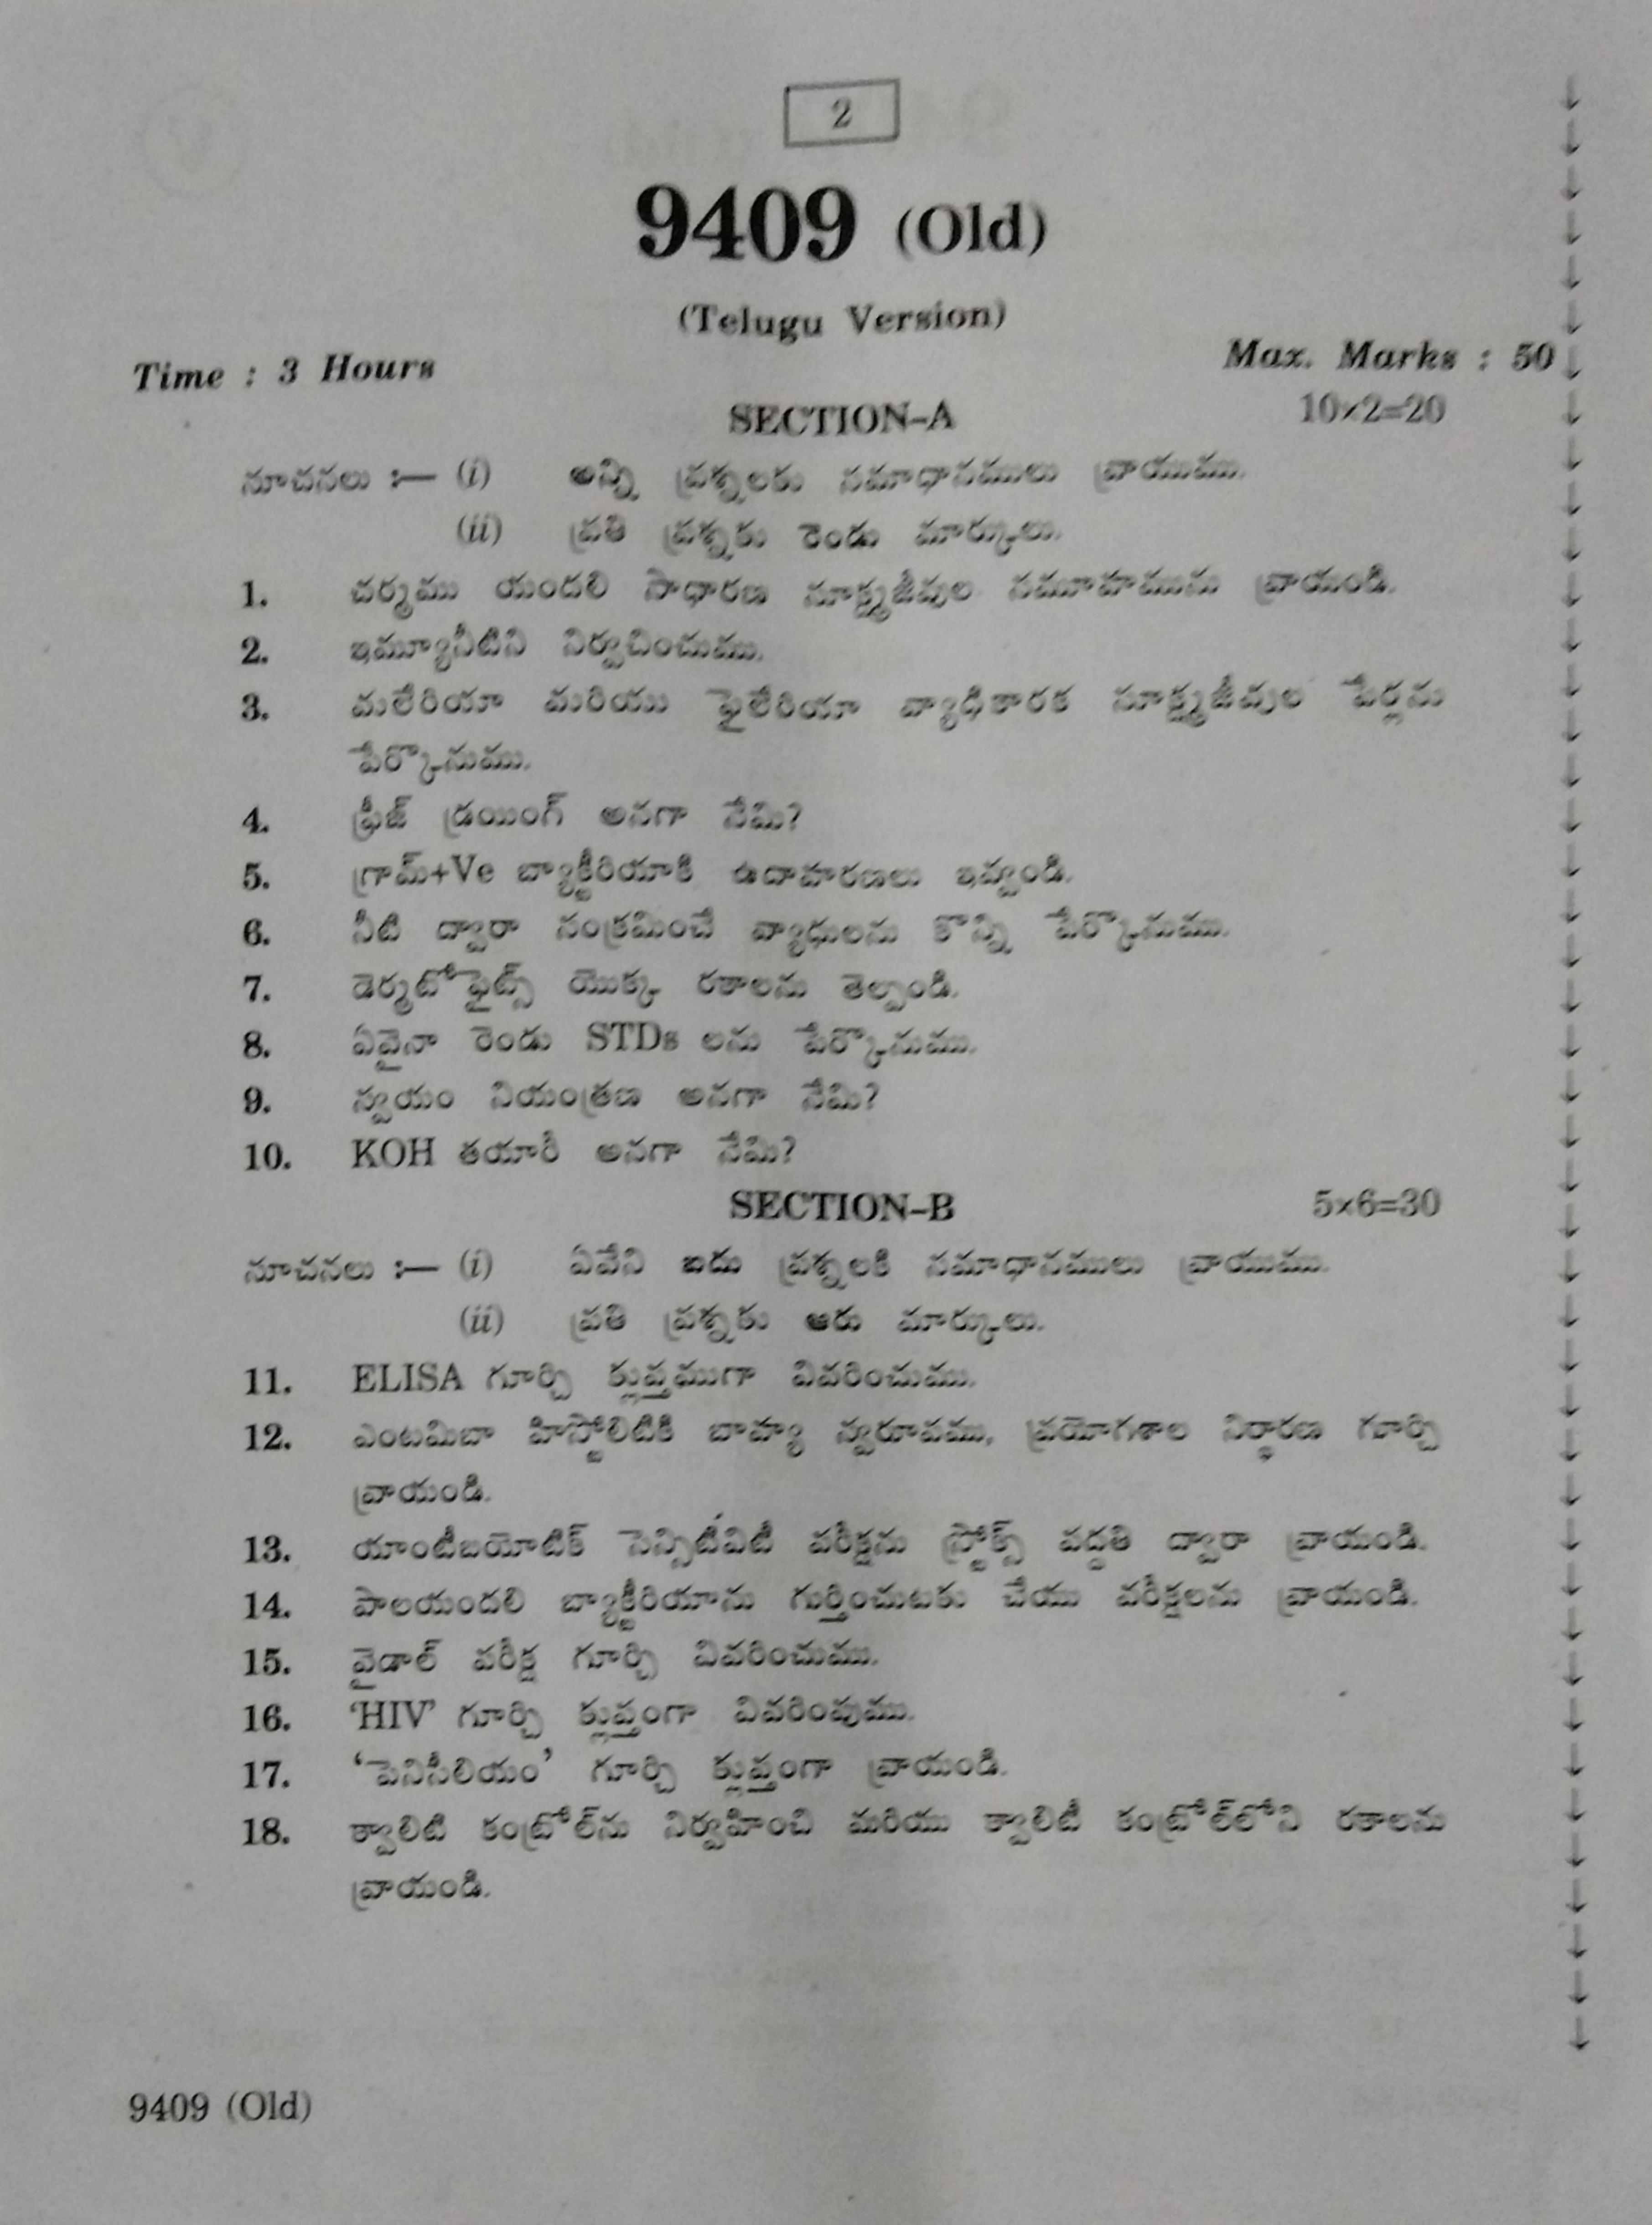 2
9409 (Old)
(Telugu Version)
Time : 3 Hours
Max. Marks : 50
SECTION–A
10×2=20
సూచనలు :— (i) అన్ని ప్రశ్నలకు సమాధానములు వ్రాయుము.
(ii) ప్రతి ప్రశ్నకు రెండు మార్కులు.
1. చర్మము యందలి సాధారణ సూక్ష్మజీవుల సమూహమును వ్రాయండి.
2. ఇమ్యూనిటిని నిర్వచించుము.
3. మలేరియా మరియు ఫైలేరియా వ్యాధికారక సూక్ష్మజీవుల పేర్లను
పేర్కొనుము.
4. ఫ్రీజ్ డ్రయింగ్ అనగా నేమి?
5. గ్రామ్+Ve బ్యాక్టీరియాకి ఉదాహరణలు ఇవ్వండి.
6. నీటి ద్వారా సంక్రమించే వ్యాధులను కొన్ని పేర్కొనుము.
7. డెర్మటోఫైట్స్ యొక్క రకాలను తెల్పండి.
8. ఏవైనా రెండు STDs లను పేర్కొనుము.
9. స్వయం నియంత్రణ అనగా నేమి?
10. KOH తయారీ అనగా నేమి?
SECTION–B
5×6=30
సూచనలు :— (i) ఏవేని ఐదు ప్రశ్నలకి సమాధానములు వ్రాయుము.
(ii) ప్రతి ప్రశ్నకు ఆరు మార్కులు.
11. ELISA గూర్చి క్లుప్తముగా వివరించుము.
12. ఎంటమిబా హిస్టోలిటికి బాహ్య స్వరూపము, ప్రయోగశాల నిర్ధారణ గూర్చి
వ్రాయండి.
13. యాంటీబయోటిక్ సెన్సిటీవిటీ పరీక్షను స్టోక్స్ పద్ధతి ద్వారా వ్రాయండి.
14. పాలయందలి బ్యాక్టీరియాను గుర్తించుటకు చేయు పరీక్షలను వ్రాయండి.
15. వైడాల్ పరీక్ష గూర్చి వివరించుము.
16. ‘HIV’ గూర్చి క్లుప్తంగా వివరింపుము.
17. ‘పెనిసీలియం’ గూర్చి క్లుప్తంగా వ్రాయండి.
18. క్వాలిటి కంట్రోల్‌ను నిర్వహించి మరియు క్వాలిటీ కంట్రోల్‌లోని రకాలను
వ్రాయండి.
9409 (Old)